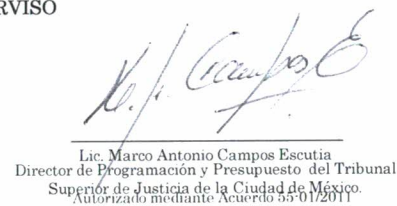 RVISO
Lic. Marco Antonio Campos Escutia
Director de Programación y Presupuesto del Tribunal
Superior de Justicia de la Ciudad de México.
Autorizado mediante Acuerdo 55-01/2011